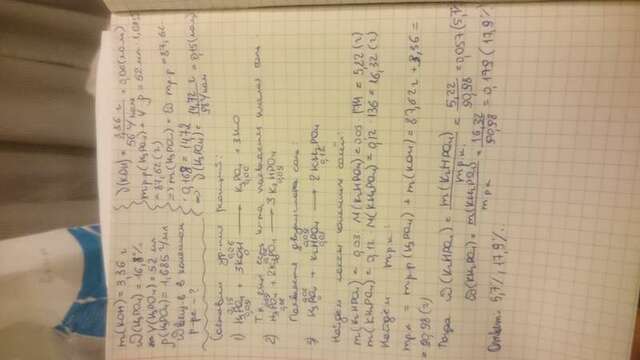 m(KOH) = 3,36 г
ω(H₃PO₄) = 16,8%
V(H₃PO₄) = 52 мл
ρ(H₃PO₄) = 1,685 г/мл
ω вещ. в в конечном
р-ре - ?
ν(KOH) = 3,36 г / 56 г/моль = 0,06 (моль)
m р.р = V · ρ = 52 мл · 1,685
= 87,62 (г)
=> m(H₃PO₄) = ω · m р.р = 87,62 ·
· 0,168 = 14,72
=> ν(H₃PO₄) = 14,72 г / 98 г/моль = 0,15 (моль)
Составим ур-ния реакций:
1) H₃PO₄ + 3KOH → K₃PO₄ + 3H₂O
Т.к. соль
2) H₃PO₄ + 2K₃PO₄ → 3K₂HPO₄
Появляется соль:
3) H₃PO₄ + K₂HPO₄ → 2KH₂PO₄
Найдём массы конечных солей:
m(K₂HPO₄) = 0,03 · M(K₂HPO₄) = 0,03 · 174 = 5,22 (г)
m(KH₂PO₄) = 0,12 · M(KH₂PO₄) = 0,12 · 136 = 16,32 (г)
Найдём m р.к:
m р.к = m р.р (H₃PO₄) + m(KOH) = 87,62 г + 3,36 =
= 90,98 (г)
Тогда ω(K₂HPO₄) = m(K₂HPO₄) / m р.к. = 5,22 / 90,98 = 0,057 (5,7%
ω(KH₂PO₄) = m(KH₂PO₄) / m р.к = 16,32 / 90,98 = 0,179 (17,9%)
Ответ: 5,7%, 17,9%.